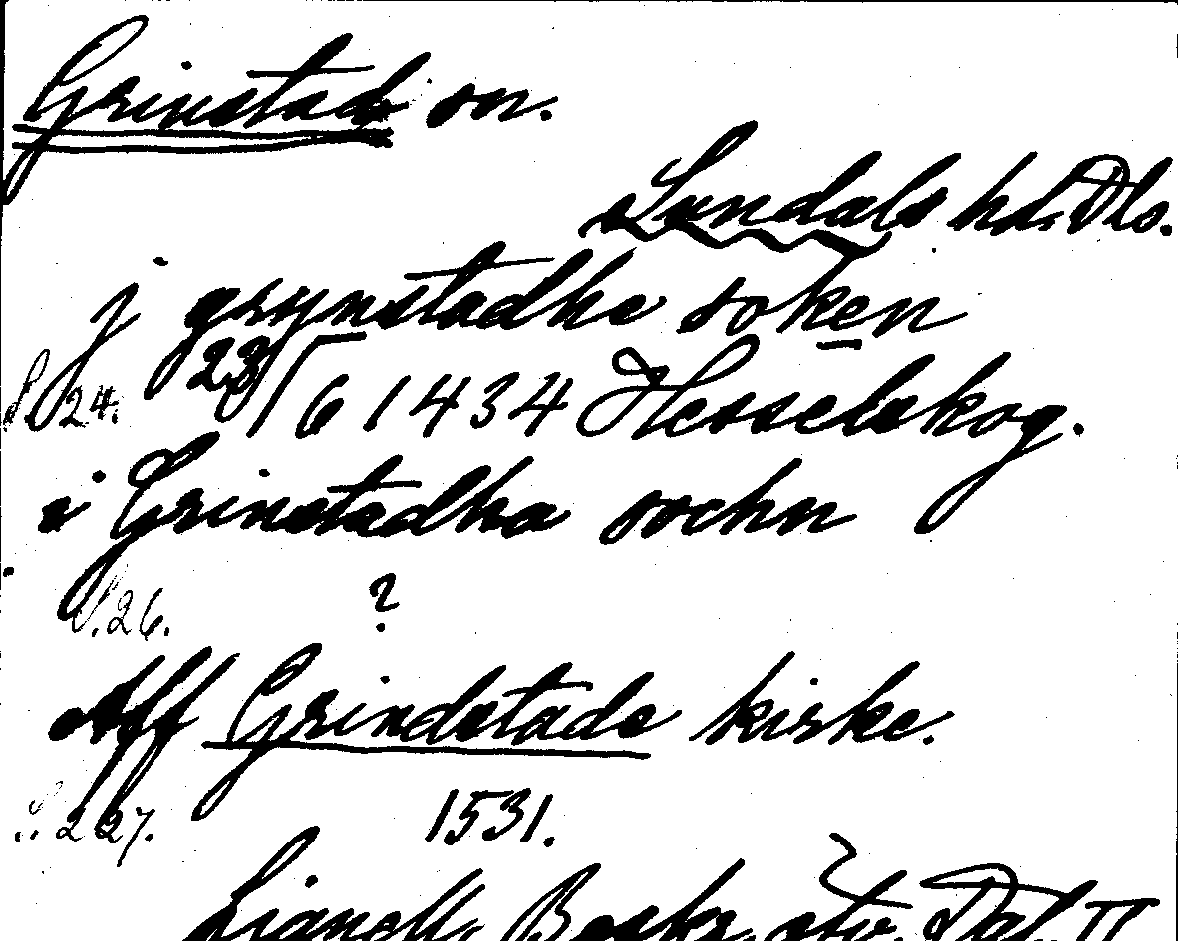 Grinstad sn.
Sundals hd. Dls.
j grynstadha soken
S. 24. 23/6 1434 Hesselskog.
i Grinstadha sochn
S. 26. ?
Aff Grindstade kirke.
S. 227. 1531.
Lignell, Beskr. öfv. Dal. II